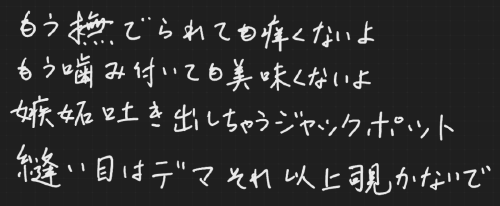 もう撫でられても痒くないよ
もう噛み付いても美味くないよ
嫉妬吐き出しちゃうジャックポット
縫い目はデマそれ以上覗かないで